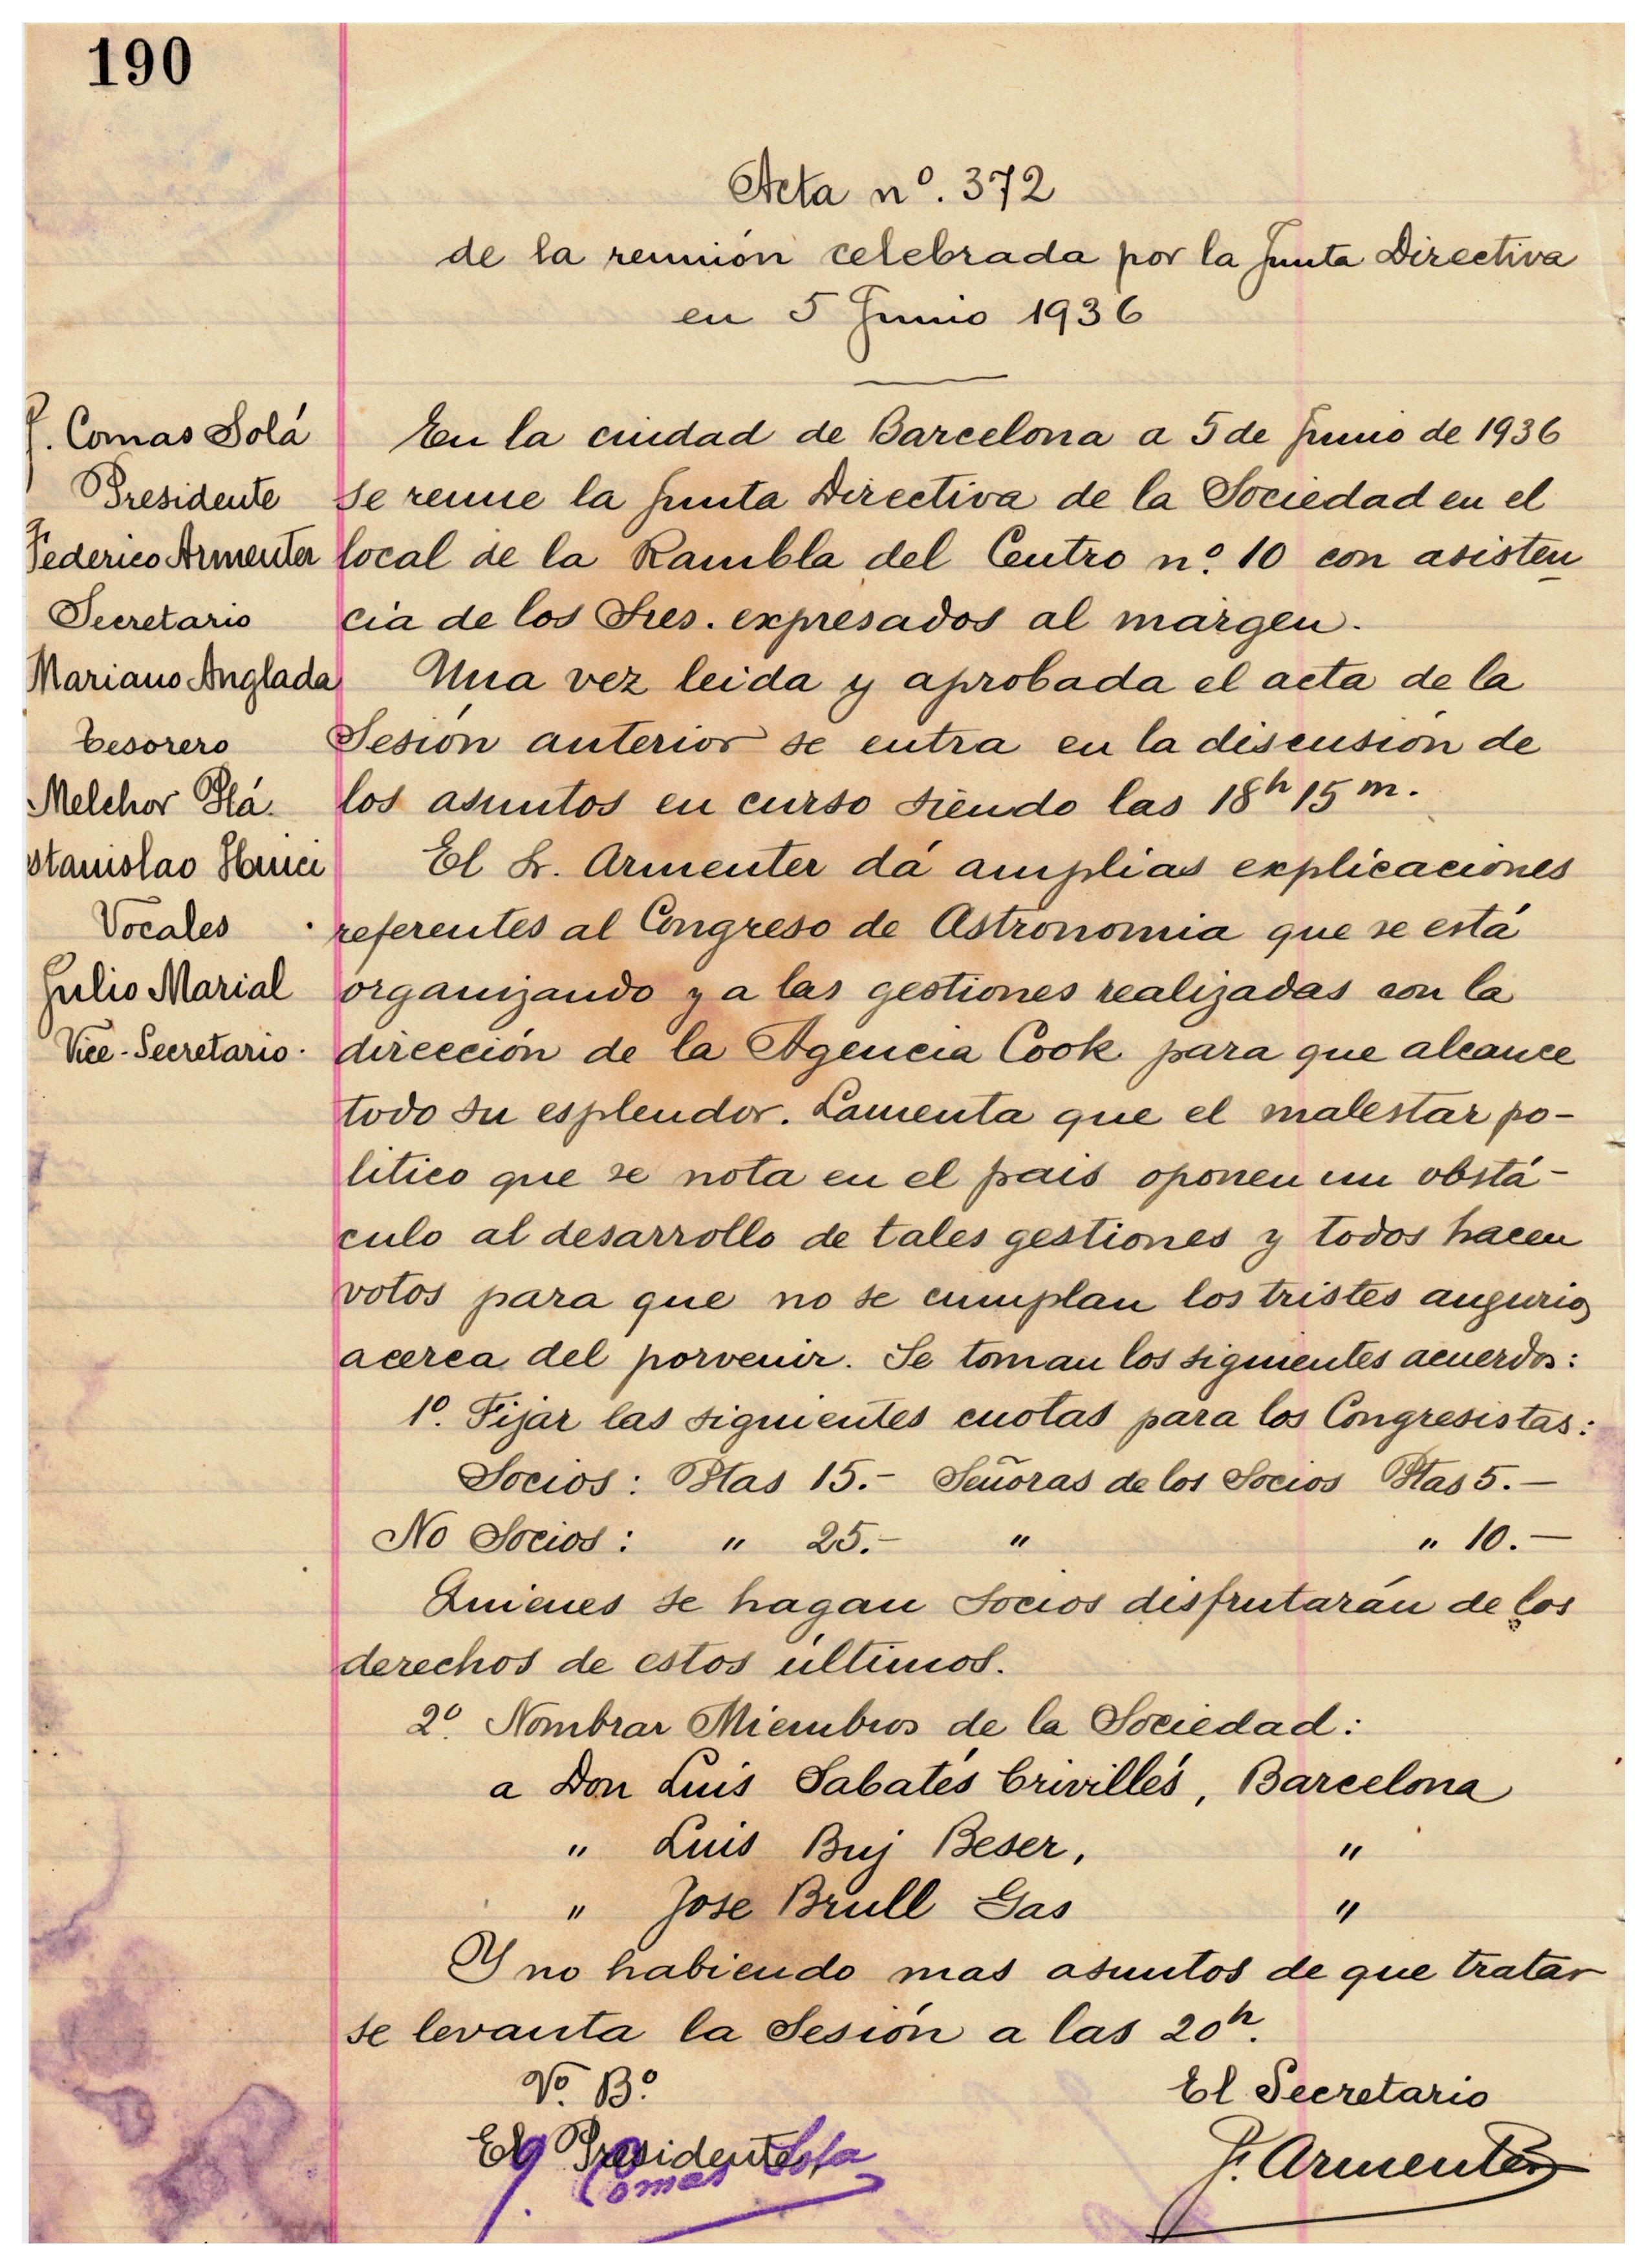 190
Acta nº. 372
de la reunión celebrada por la Junta Directiva
en 5 Junio 1936
J. Comas Solá
Presidente
Federico Armenter
Secretario
Mariano Anglada
Tesorero
Melchor Plá.
stanislao
Vocales
Julio Marial
Vice-Secretario.
En la ciudad de Barcelona a 5 de Junio de 1936
se reune la Junta Directiva de la Sociedad en el
local de la Rambla del Centro nº. 10 con asisten
cia de los Sres. expresados al márgen.
Una vez leida y aprobada el acta de la
Sesión anterior se entra en la discusión de
los asuntos en curso siendo las 18h 15 m.
El Sr. Armenter dá amplias explicaciones
referentes al Congreso de Astronomia que se está
organizando y a las gestiones realizadas con la
dirección de la Agencia Cook para que alcance
todo su esplendor. Lamenta que el malestar po-
litico que se nota en el pais oponen un obstá-
culo al desarrollo de tales gestiones y todos hacen
votos para que no se cumplan los tristes augurios
acerca del porvenir. Se toman los siguientes acuerdos:
1º. Fijar las siguientes cuotas para los Congresistas:
Socios: Ptas 15.- Señoras de los Socios Ptas 5.—
No Socios: " 25.- " " 10.—
Quienes se hagan Socios disfrutarán de los
derechos de estos últimos.
2º. Nombrar Miembros de la Sociedad:
a Don Luis Sabatés Crivillés, Barcelona
" Luis Buj Beser, "
" Jose Brull Gas "
Y no habiendo mas asuntos de que tratar
se levanta la Sesión a las 20h.
Vº. Bº.
El Presidente,
J. Comas Sola
El Secretario
F. Armenter